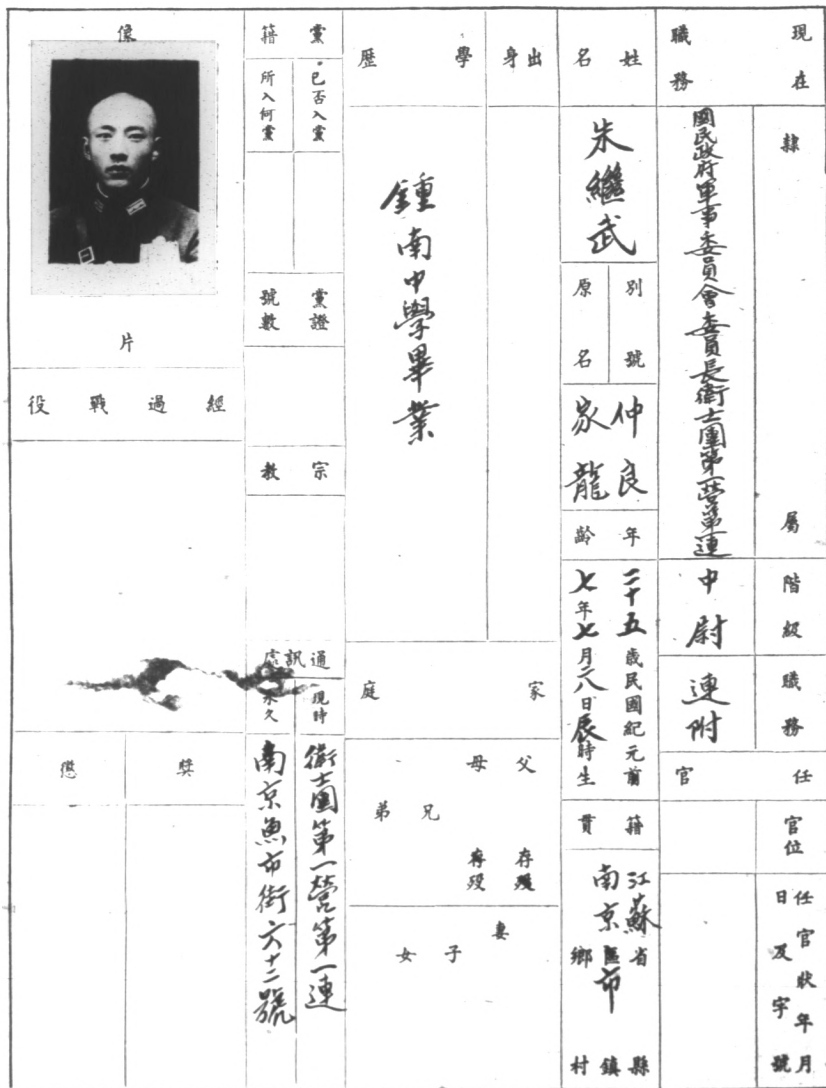 現在職務
隸屬
國民政府軍事委員會委員長衛士團第一營第一連
階級
中尉
職務
連附
任官
官位
任官狀年月日及字號
姓名
朱繼武
別號
原名
仲良
家龍
年齡
二十五歲民國紀元前
七年七月六日辰時生
籍貫
江蘇省 縣鎮村
南京市區鄉
出身
學歷
鍾南中學畢業
家庭
父 存歿
母 存歿
兄弟
妻
子女
黨籍
已否入黨
所入何黨
黨證號數
宗教
通訊處
現時
衛士團第一營第一連
永久
南京魚市街六十二號
像片
經過戰役
獎
懲